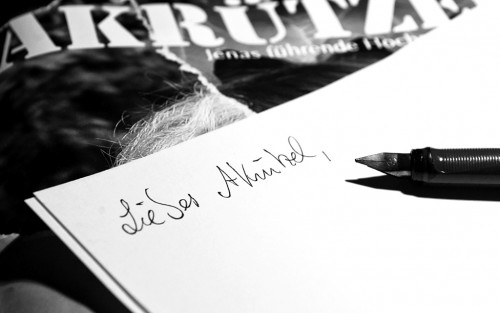 AKRÜTZE
Jenas führende Hoch
Liebes Akrützel,